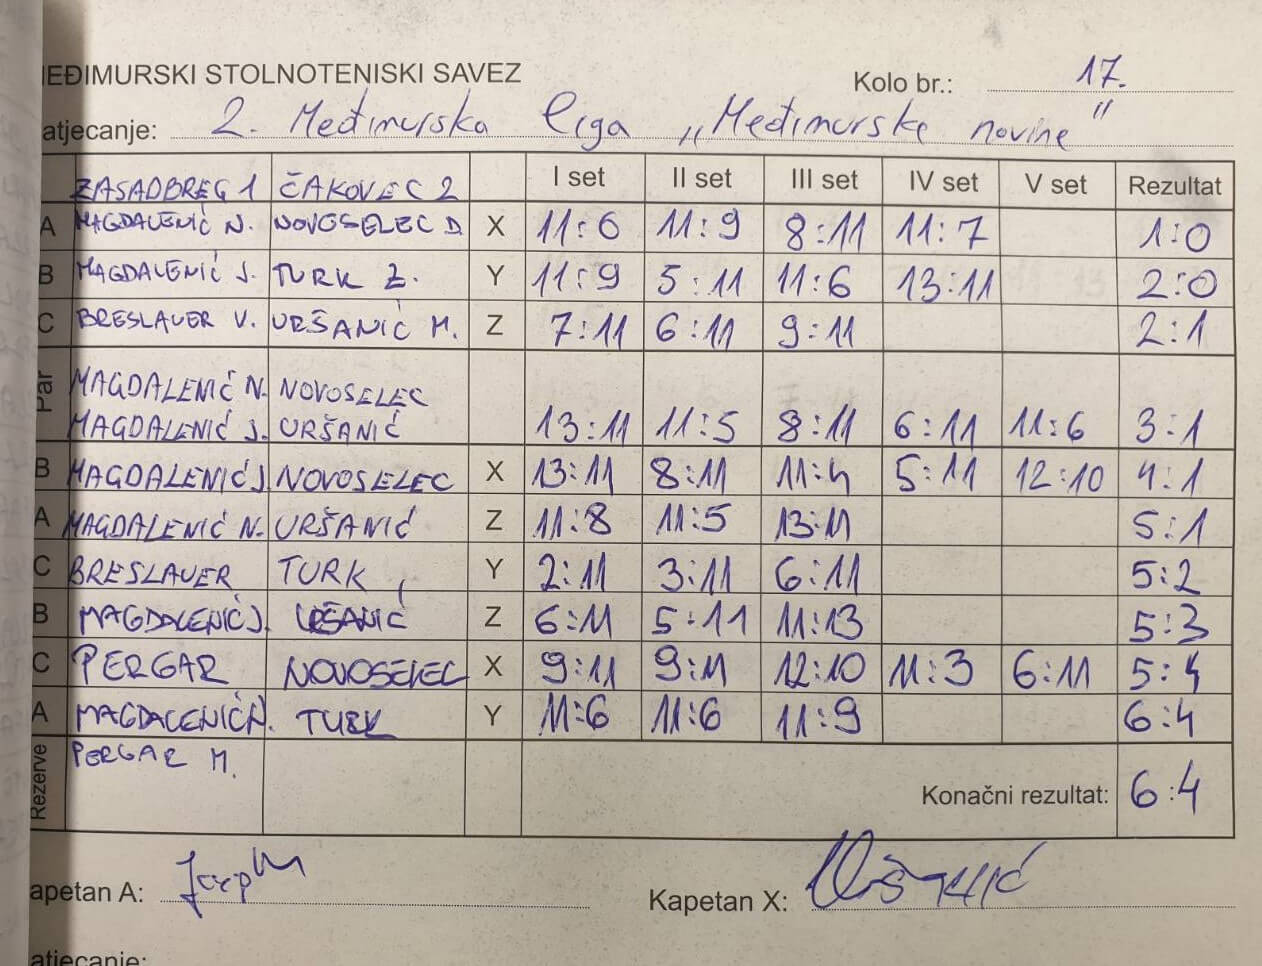 EĐIMURSKI STOLNOTENISKI SAVEZ
Kolo br.: 17.
atjecanje: 2. Međimurska liga „Međimurske novine"
ZASADBREG 1 ČAKOVEC 2 I set II set III set IV set V set Rezultat
A MAGDALENIĆ N. NOVOSELEC D. X 11:6 11:9 8:11 11:7 1:0
B MAGDALENIĆ J. TURK Z. Y 11:9 5:11 11:6 13:11 2:0
C BRESLAUER V. URŠANIĆ M. Z 7:11 6:11 9:11 2:1
Par MAGDALENIĆ N. NOVOSELEC
MAGDALENIĆ J. URŠANIĆ 13:11 11:5 8:11 6:11 11:6 3:1
B MAGDALENIĆ J. NOVOSELEC X 13:11 8:11 11:4 5:11 12:10 4:1
A MAGDALENIĆ N. URŠANIĆ Z 11:8 11:5 13:11 5:1
C BRESLAUER TURK Y 2:11 3:11 6:11 5:2
B MAGDALENIĆ J. URŠANIĆ Z 6:11 5:11 11:13 5:3
C PERGAR NOVOSELEC X 9:11 9:11 12:10 11:3 6:11 5:4
A MAGDALENIĆ N. TURK Y 11:6 11:6 11:9 6:4
Rezerve PERGAR M.
Konačni rezultat: 6:4
apetan A:
Kapetan X:
atjecanje: